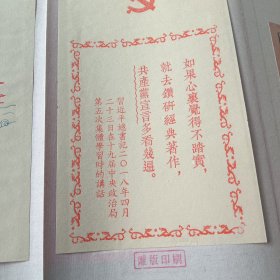 如果心裏覺得不踏實，
就去鑽研經典著作，
共產黨宣言多看幾遍。
習近平總書記二〇一八年四月
二十三日在十九屆中央政治局
第五次集體學習時的講話
雕版印刷